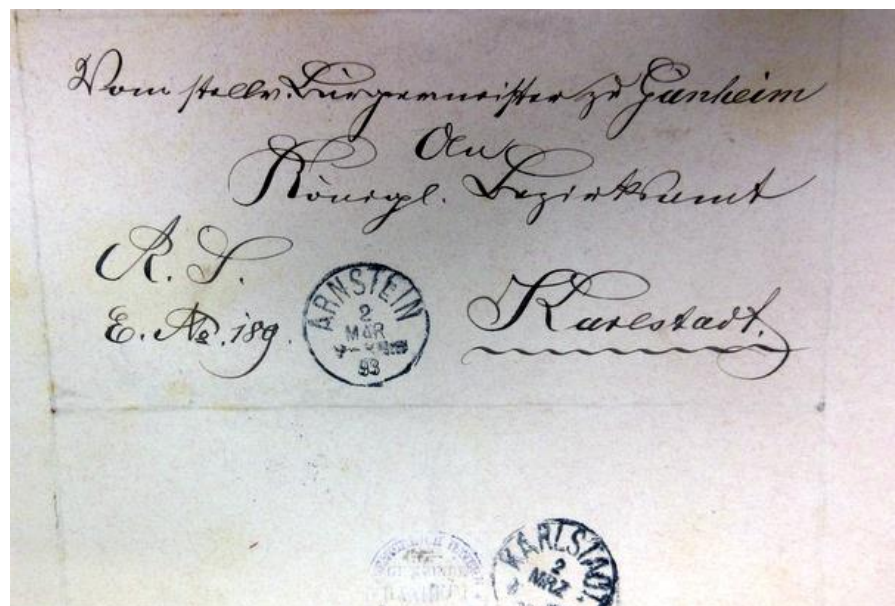 Vom stellv. Bürgermeister zu Gänheim
An
Königl. Bezirksamt
R. S.
E. No. 189.
Karlstadt.
ARNSTEIN
2
MÄR
93
KARLSTADT
2
MRZ